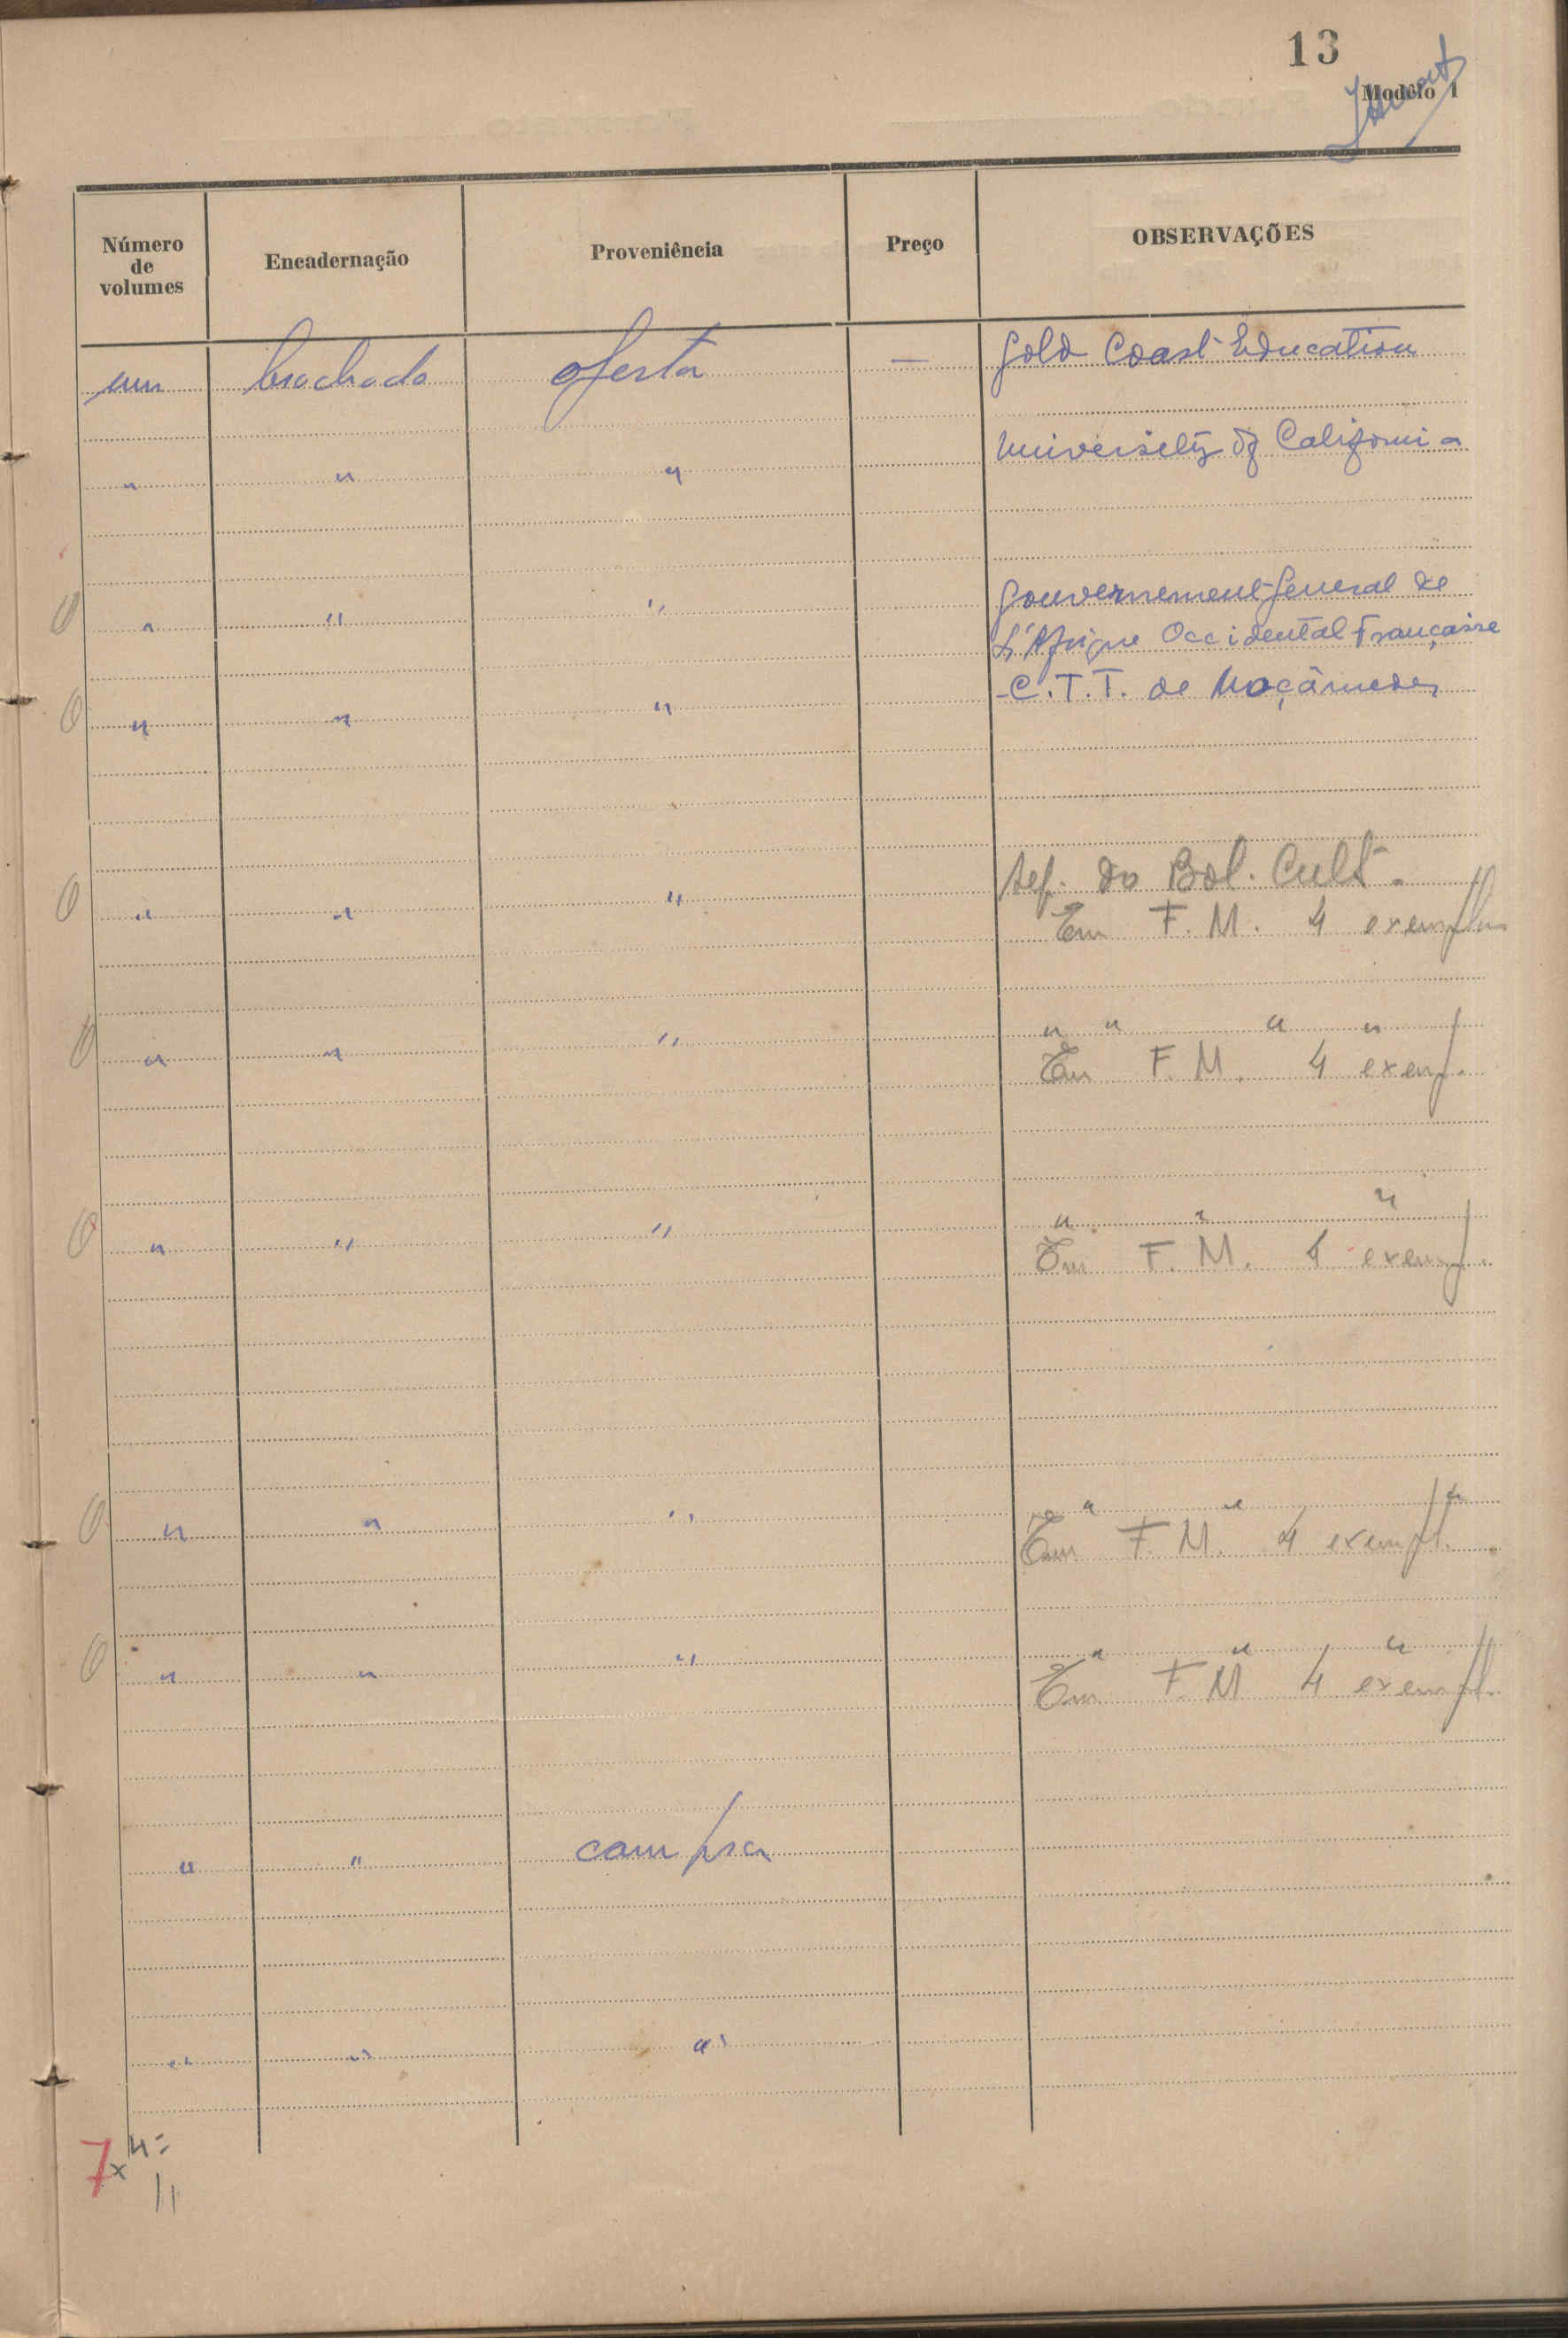 13
Modêlo 1
Número de volumes Encadernação Proveniência Preço OBSERVAÇÕES
um brochado oferta — Gold Coast Education
" " " University of California
" " " Gouvernement General de
L'Afrique Occidental Françaisse
" " " C.T.T. de Moçâmedes
" " " Sep. do Bol. Cult.
Em F. M. 4 exempl.
" " " " " " "
Em F. M. 4 exemp.
" " " " " "
Em F. M. 4 exemp.
" " " " " "
Em F. M. 4 exempl.
" " " " " "
Em F. M 4 exempl.
" " compra
" " "
7 x 4 =
11